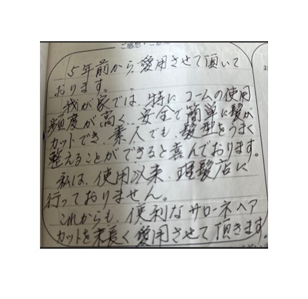 5年前から愛用させて頂いて
おります。
我が家では、特にコームの使用
頻度が高く、安全で簡単に髪が
カットでき、素人でも、髪型をうまく
整えることができると喜んでおります。
私は、使用以来、理髪店に
行っておりません。
これからも、便利なサローネヘア
カットを末長く愛用させて頂きます。